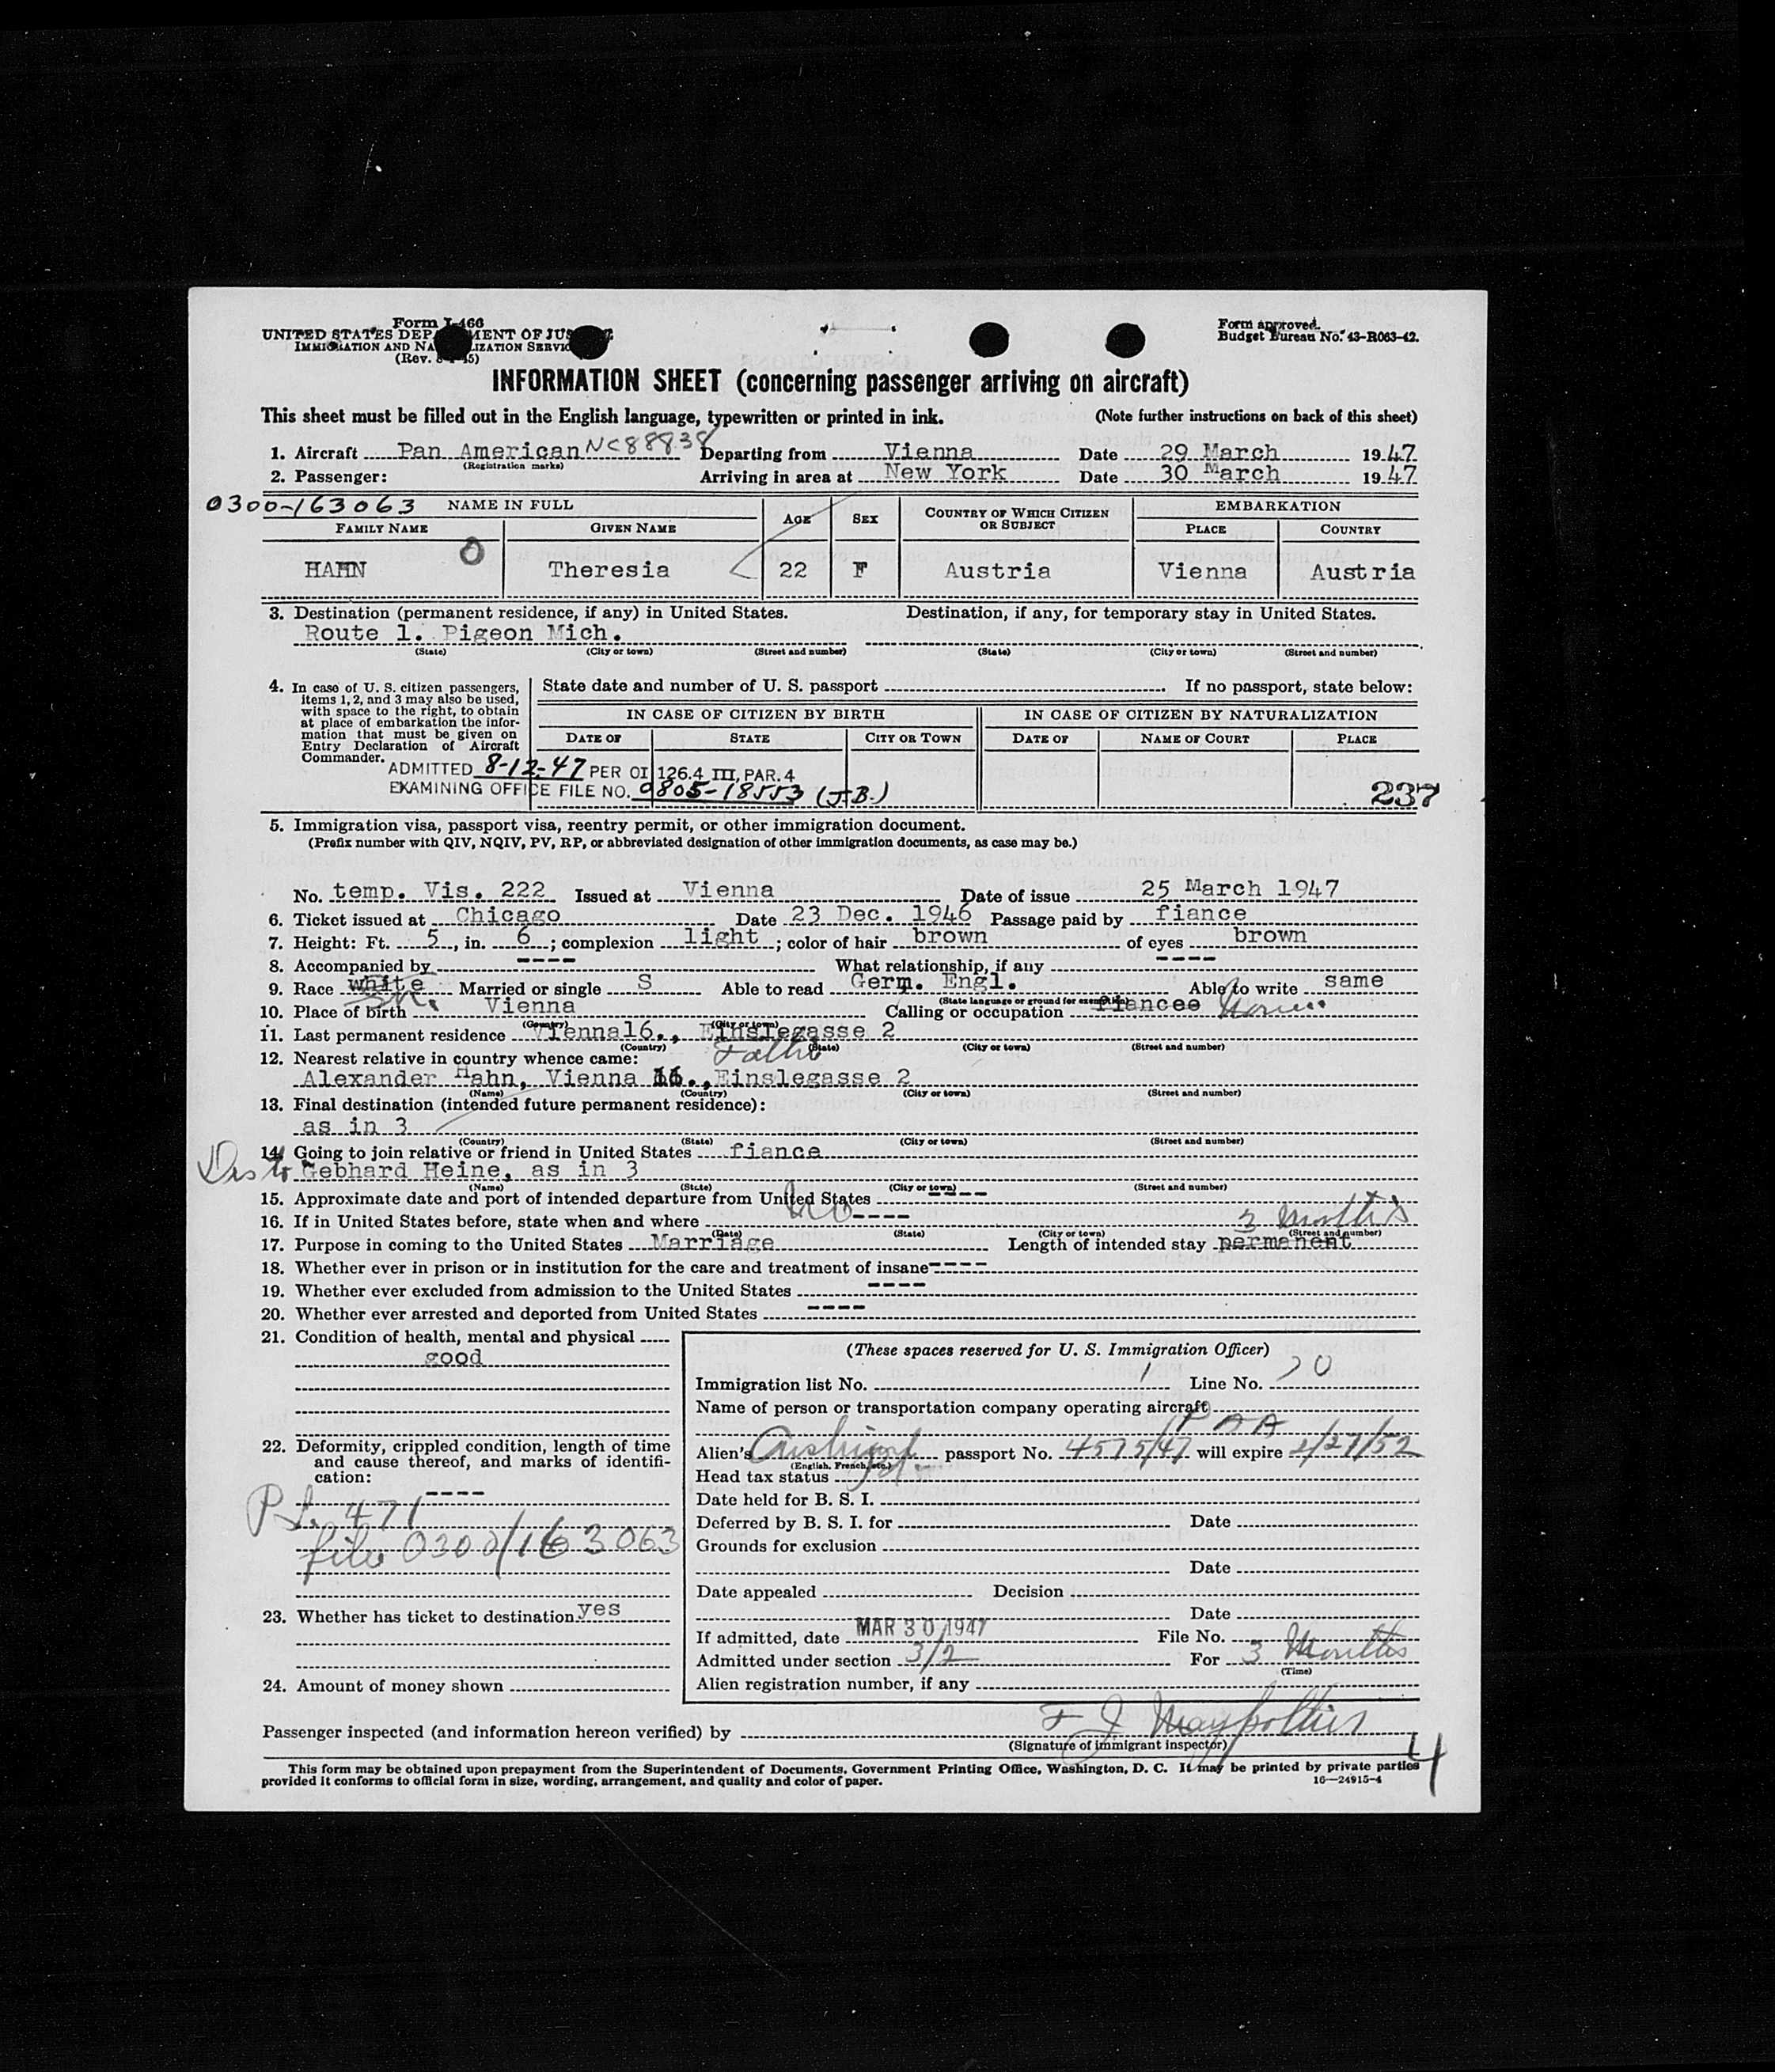 Form I-466
UNITED STATES DEPARTMENT OF JUSTICE
IMMIGRATION AND NATURALIZATION SERVICE
(Rev. 45)
Form approved.
Budget Bureau No. 43-R063-42.
INFORMATION SHEET (concerning passenger arriving on aircraft)
This sheet must be filled out in the English language, typewritten or printed in ink. (Note further instructions on back of this sheet)
1. Aircraft Pan American NC88838 Departing from Vienna Date 29 March 1947
(Registration marks)
2. Passenger: Arriving in area at New York Date 30 March 1947
0300-163063 NAME IN FULL AGE SEX COUNTRY OF WHICH CITIZEN OR SUBJECT EMBARKATION
FAMILY NAME GIVEN NAME PLACE COUNTRY
HAHN O Theresia 22 F Austria Vienna Austria
3. Destination (permanent residence, if any) in United States. Destination, if any, for temporary stay in United States.
Route 1. Pigeon Mich.
(State) (City or town) (Street and number) (State) (City or town) (Street and number)
4. In case of U. S. citizen passengers, items 1, 2, and 3 may also be used, with space to the right, to obtain at place of embarkation the information that must be given on Entry Declaration of Aircraft Commander.
State date and number of U. S. passport If no passport, state below:
IN CASE OF CITIZEN BY BIRTH IN CASE OF CITIZEN BY NATURALIZATION
DATE OF STATE CITY OR TOWN DATE OF NAME OF COURT PLACE
ADMITTED 8-12-47 PER OI 126.4 III, PAR. 4
EXAMINING OFFICE FILE NO. 0805-18553 (J.B.) 237
5. Immigration visa, passport visa, reentry permit, or other immigration document.
(Prefix number with QIV, NQIV, PV, RP, or abbreviated designation of other immigration documents, as case may be.)
No. temp. Vis. 222 Issued at Vienna Date of issue 25 March 1947
6. Ticket issued at Chicago Date 23 Dec. 1946 Passage paid by fiance
7. Height: Ft. 5, in. 6; complexion light; color of hair brown of eyes brown
8. Accompanied by ---- What relationship, if any ----
9. Race white Married or single S Able to read Germ. Engl. Able to write same
(State language or ground for exemption)
10. Place of birth Vienna Calling or occupation fiancee
(Country) (City or town)
11. Last permanent residence Vienna16., Einslegasse 2
(Country) (State) (City or town) (Street and number)
12. Nearest relative in country whence came: Father
Alexander Hahn, Vienna 16., Einslegasse 2
(Name) (Country) (City or town) (Street and number)
13. Final destination (intended future permanent residence):
as in 3
(Country) (State) (City or town) (Street and number)
14. Going to join relative or friend in United States fiance
Gebhard Heine, as in 3
(Name) (State) (City or town) (Street and number)
15. Approximate date and port of intended departure from United States ----
16. If in United States before, state when and where No ---- 3 Months
(Date) (State) (City or town) (Street and number)
17. Purpose in coming to the United States Marriage Length of intended stay permanent
18. Whether ever in prison or in institution for the care and treatment of insane ----
19. Whether ever excluded from admission to the United States ----
20. Whether ever arrested and deported from United States ----
21. Condition of health, mental and physical
good
22. Deformity, crippled condition, length of time and cause thereof, and marks of identification:
----
471
file 0300/163063
23. Whether has ticket to destination yes
24. Amount of money shown
(These spaces reserved for U. S. Immigration Officer)
Immigration list No. 1 Line No. 20
Name of person or transportation company operating aircraft
PAA
Alien's passport No. 4575/47 will expire 2/27/52
(English, French, etc.)
Head tax status
Date held for B. S. I.
Deferred by B. S. I. for Date
Grounds for exclusion
Date
Date appealed Decision
Date
If admitted, date MAR 30 1947 File No.
Admitted under section 3/2 For 3 Months
(Time)
Alien registration number, if any
Passenger inspected (and information hereon verified) by
(Signature of immigrant inspector)
4
This form may be obtained upon prepayment from the Superintendent of Documents, Government Printing Office, Washington, D. C. It may be printed by private parties
provided it conforms to official form in size, wording, arrangement, and quality and color of paper. 16—24915-4